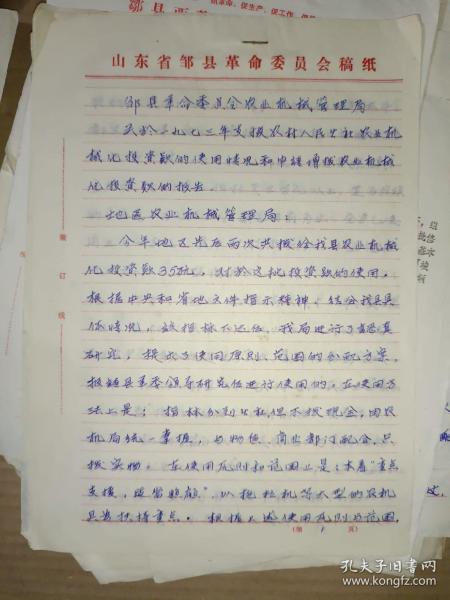 山东省邹县革命委员会稿纸
邹县革命委员会农业机械管理局
关于一九七三年支援农村人民公社农业机
械化投资款的使用情况和申请增拨农业机械
化投资款的报告
地区农业机械管理局：
今年地区先后两次共拨给我县农业机械
化投资款35万元，对于这批投资款的使用，
根据中央和省地文件指示精神，结合我县具
体情况，该指标下达后，我局进行了认真
研究，提出了使用原则、范围的分配方案，
报经县革委领导研究后进行使用的，在使用方
法上是：指标分到公社，但不拨现金，由农
机局统一掌握，与物资、商业部门配合，只
拨实物。在使用原则和范围上是：本着"重点
支援，适当照顾"，以拖拉机等大型的农机
具为扶持重点。根据上述使用原则与范围，
（第 1 页）
装
订
线
孔夫子旧书网
www.kongfz.com